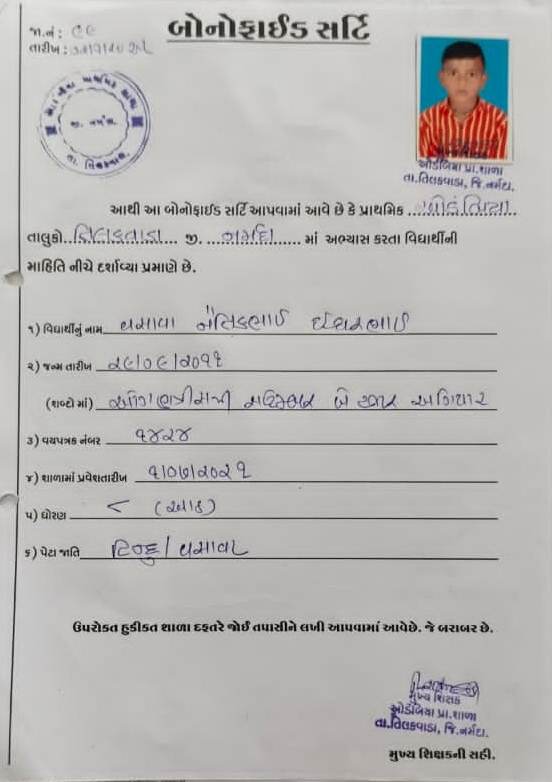 બોનોફાઈડ સર્ટિ
જા.નં : ૯૯
તારીખ :
તા. તિલકવાડા.
જી. નર્મદા.
ઓડંબિયા પ્રા.શાળા
તા.તિલકવાડા, જિ.નર્મદા.
આથી આ બોનોફાઈડ સર્ટિ આપવામાં આવે છે કે પ્રાથમિક ઓડંબિયા
તાલુકો તિલકવાડા જી. નર્મદા માં અભ્યાસ કરતા વિદ્યાર્થીની
માહિતિ નીચે દર્શાવ્યા પ્રમાણે છે.
૧) વિદ્યાર્થીનું નામ વસાવા નૈતિકભાઈ ઈશ્વરભાઈ
૨) જન્મ તારીખ ૨૯/૦૯/૨૦૧૧
(શબ્દો માં) ઓગણત્રીસમી સપ્ટેમ્બર બે હજાર અગિયાર
૩) વયપત્રક નંબર ૧૪૨૪
૪) શાળામાં પ્રવેશતારીખ ૧/૦૭/૨૦૨૧
૫) ધોરણ ૮ (આઠ)
૬) પેટા જાતિ હિન્દુ / વસાવા
ઉપરોકત હુકીકત શાળા દફતરે જોઈ તપાસીને લખી આપવામાં આવેછે. જે બરાબર છે.
મુખ્ય શિક્ષક
ઓડંબિયા પ્રા.શાળા
તા.તિલકવાડા, જિ.નર્મદા.
મુખ્ય શિક્ષકની સહી.